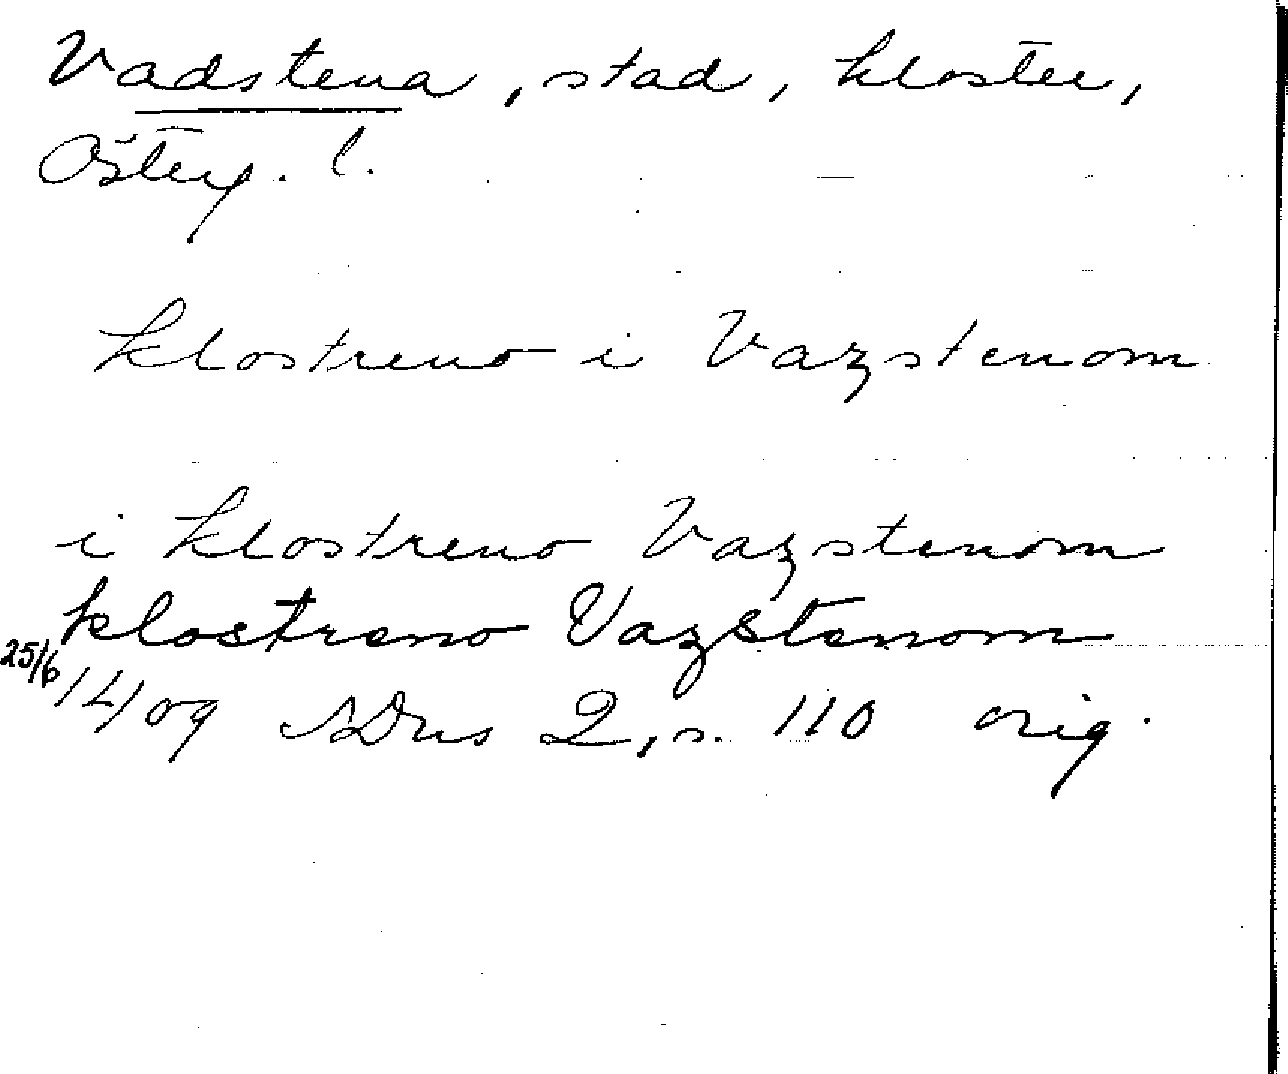 Vadstena, stad, kloster,
Österg. l.
klostreno i Vazstenom
i klostreno Vazstenom
klostreno Vazstenom
25/6 1409 SDns 2, s. 110 orig.